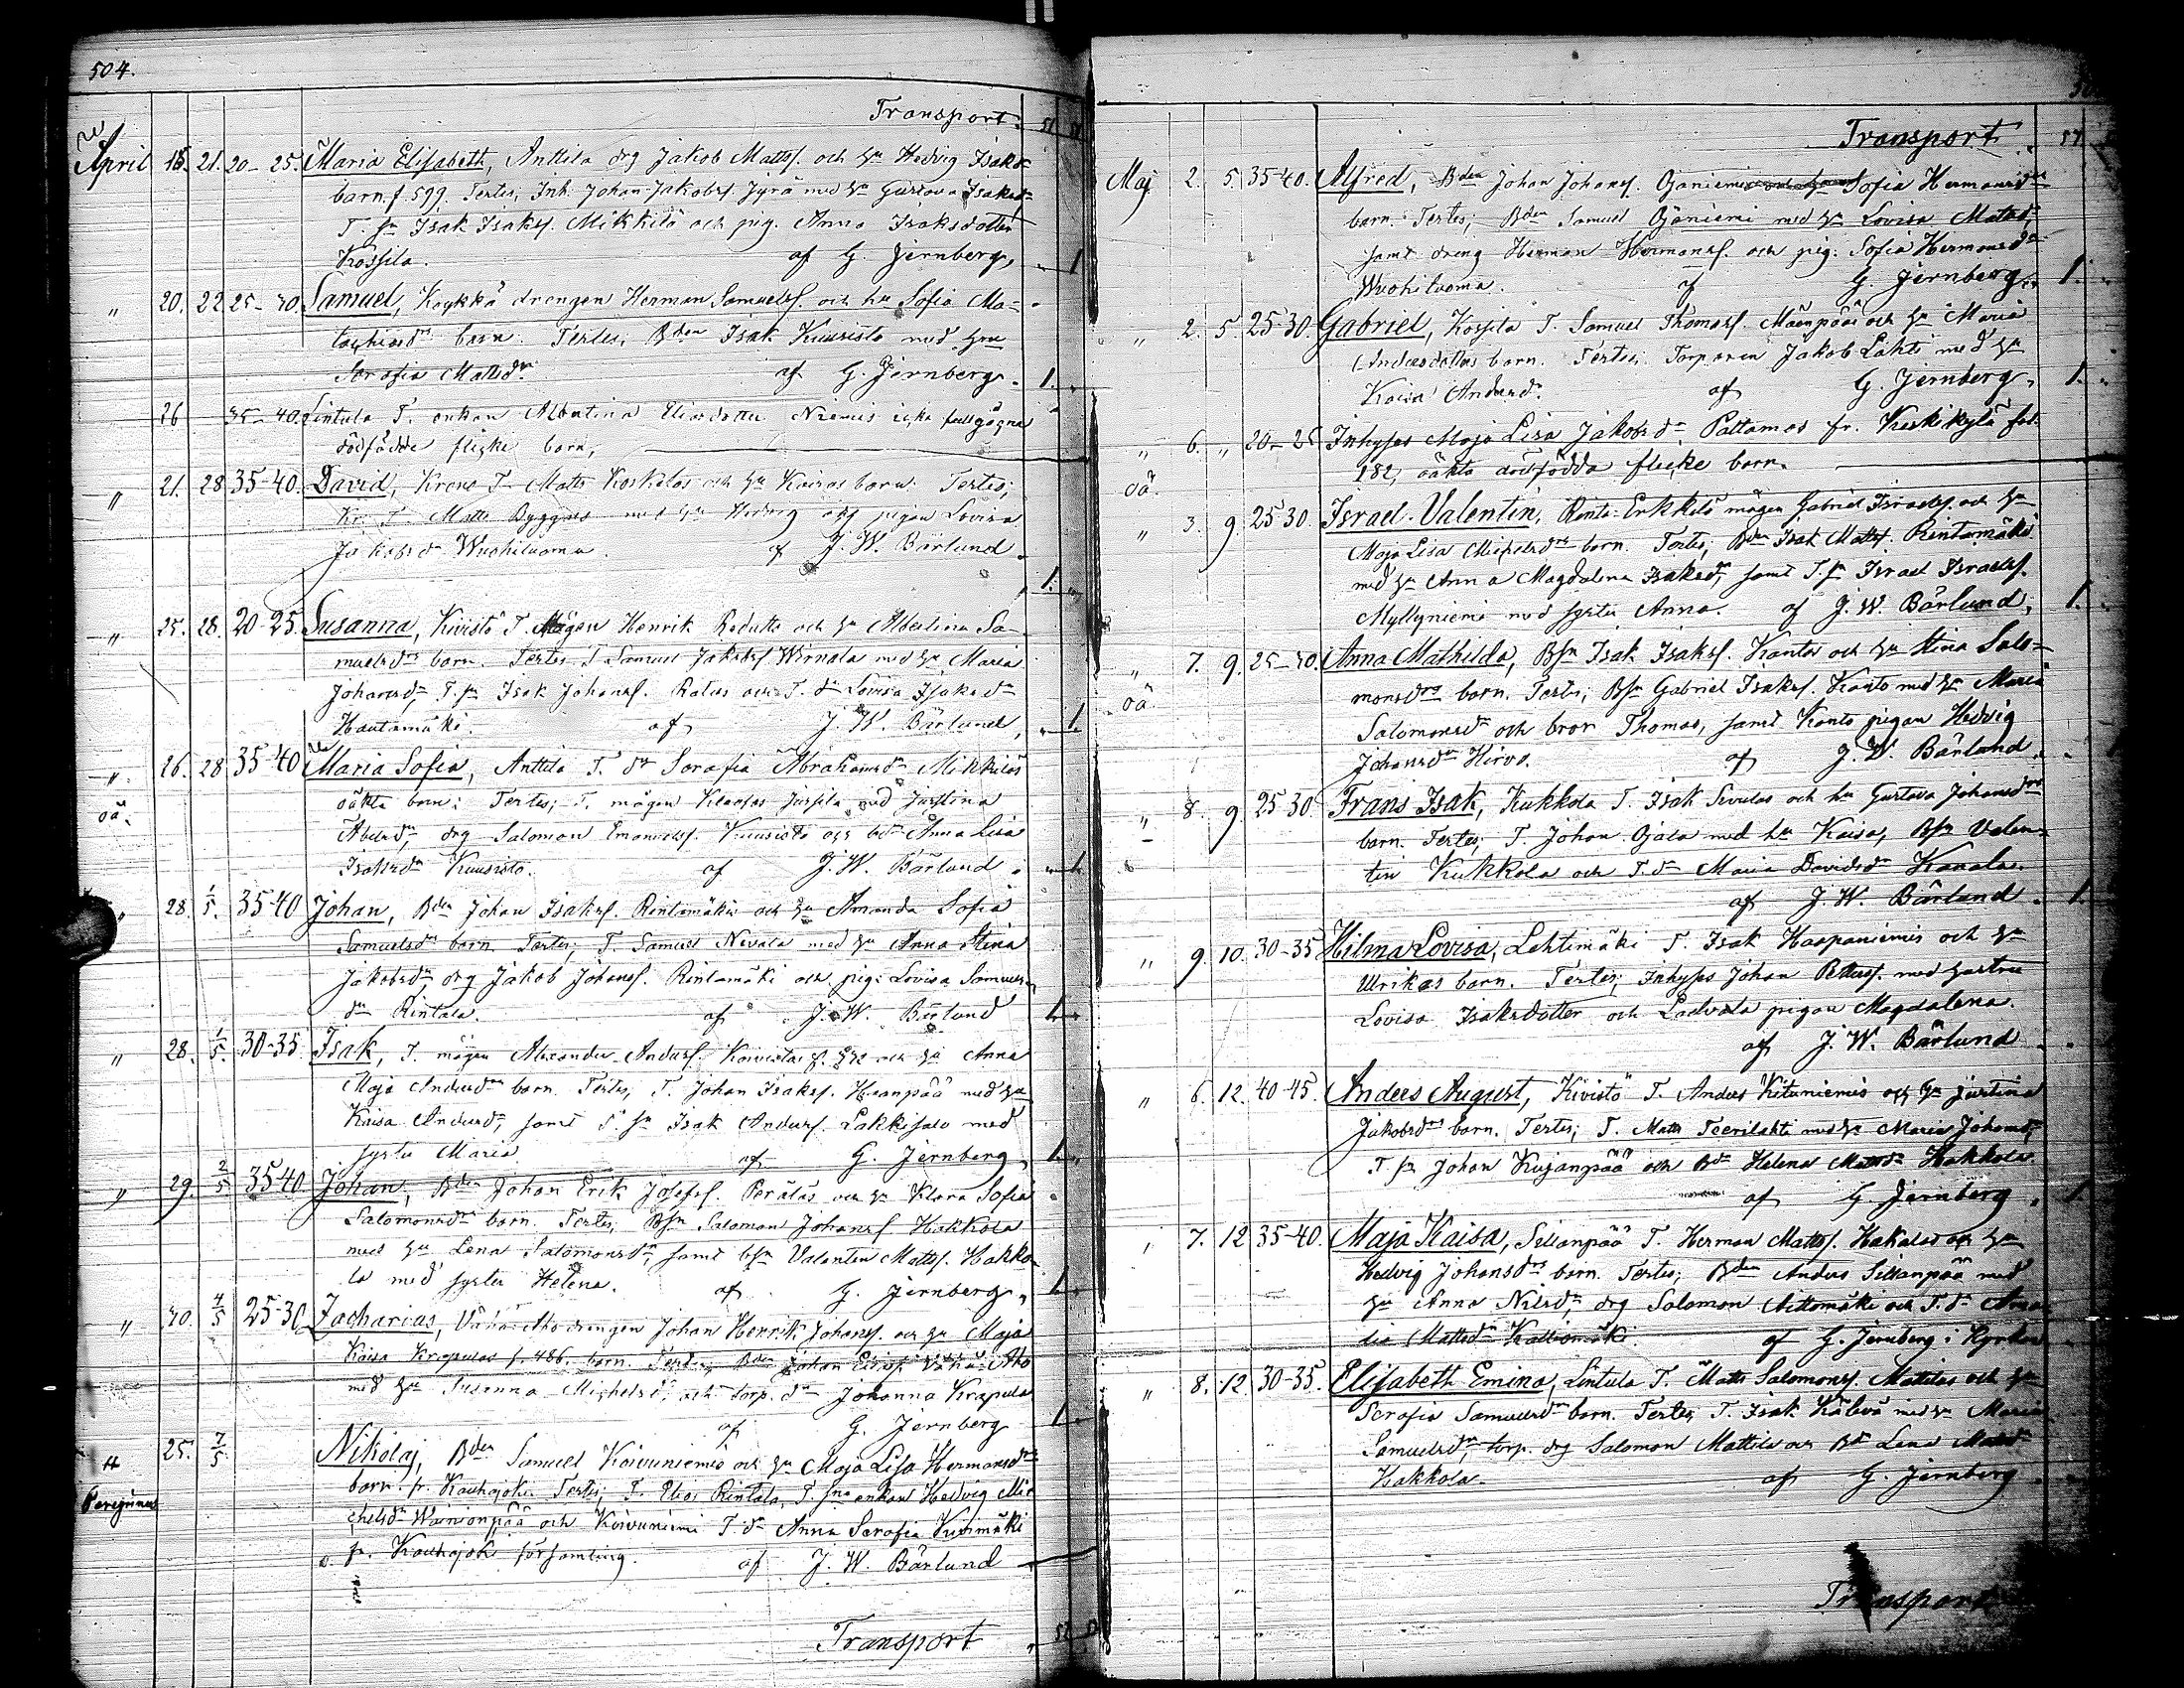 504.
Transport. 51
April 15. 21. 20-25. Maria Elisabeth, Anttila drg Jakob Mattsf. och hu Hedvig Isaks-
barn. f. 599. Testes; Inh. Johan Jakobsf. Jyrä med hu Gustava Isaksdr,
T. sn Isak Isaksf. Mikkilä och pig. Anna Isaksdotter
Kossila. af G. Jernberg, 1
" 20. 22. 25-30. Samuel, Koykkä drengen Herman Samuelsf. och hu Sofia Ma-
barn. Testes; Bden Isak Kuuristo med hu
Serafia Mattsdr. af G. Jernberg. 1.
26 35-40. Lintula T. enkan Albertina Eliasdotter Niemis icke fullgågna
dödfödda flicke barn,
" 21. 28. 35-40. David, Krono T. Matts Koskelas och hu Kaisas barn. Testes;
Kr. T. Matts Byggas med hu Hedvig och pigan Lovisa
Jakobsdr Wuohiluoma. af J. W. Bärlund.
1.
" 25. 28. 20-25. Susanna, Kivistö T. Mågen Henrik Reduts och hu Albertina Sa-
muelsdrs barn. Testes; T. Samuel Jakobsf. med hu Maria
Johansdr, T. sn Isak Johansf. och T. dr Lovisa Isaksdr
Hautamäki. af J. W. Bärlund, 1
" 26. 28 35-40 Maria Sofia, Anttila T. dr Serafia Abrahamsdr Mikkiläs
oä. oäkta barn: Testes; T. mågen med Justina
Abelsdr, drg Salomon Emanuelsf. Kuuristo och bdr Anna Lisa
Isaksdr Kuuristo. af J. W. Bärlund.
" 28. 1/5. 35-40 Johan, Bden Johan Isaksf. Rintamäkis och hu Amanda Sofia
Samuelsdrs barn. Testes; T. Samuel Nevala med hu Anna Stina
Jakobsdr drg Jakob Johansf. Rintamäki och pig: Lovisa Samuels-
dr Rintala. af J. W. Bärlund 1.
" 28. 1/5. 30-35. Isak, T. mågen Alexander Andersf. Koivistos och hu Anna
Maja Andersdrs barn. Testes; T. Johan Isaksf. Haanpää med hu
Kaisa Andersdr, samt T. sn Isak Andersf. Lakkisalo med
syster Maria. af G. Jernberg, 1.
" 29. 2/5 35-40 Johan, Bden Johan Erik Josefsf. Peräläs och hu Klara Sofia
Salomonsdrs barn. Testes; Bsn Salomon Johansf Hakkola
med hu Lena Salomonsdr, samt bsn Valentin Mattsf. Hakko-
la med syster Helena. af G. Jernberg, 1.
" 30. 4/5 25-30 Zacharias, Vähä Aho drengen Johan Henrik Johansf. och hu Maja
Kaisa Krapulas f. 486. barn. Testes; Bden Johan Vähä-Aho
med hu Susanna Michelsdr, och torp. dr Johanna Krapula
af G. Jernberg 1.
" 25. 7/5. Nikolaj, Bden Samuel Koivuniemis och hu Maja Lisa Hermansdrs
Peregrinus barn. fr. Kauhajoki. Testes; T. Elias Rintala, T. sns enkan Hedvig Mi-
chelsdr Wainionpää och Koivuniemi T. dr Anna Serafia Kivimäki
fr. Kauhajoki församling. af J. W. Bärlund
Transport
Transport 51
Maj 2. 5. 35-40. Alfred, Bden Johan Johansf. Ojaniemis Sofia Hermansdrs
barn. Testes; Bden Samuel Ojaniemi med hu Lovisa Mattsdr,
samt dreng Herman Hermansf. och pig: Sofia Hermansdr
Wuohiluoma. af G. Jernberg, 1.
" 2. 5. 25-30. Gabriel, Kossila T. Samuel Thomasf. Mäenpääs och hu Maria
Andersdotters barn. Testes; Torparen Jakob Lahti med hu
Kaisa Andersdr. af G. Jernberg, 1.
" 6. " 20-25 Inhyses Maja Lisa Jakobsdr. Pattamas fr. Keskikylä fol.
oä. 182, oäkta dödfödda flicke barn.
" 3. 9. 25-30. Israel Valentin, Rinta-Erkkilä mågen Gabriel Israelsf. och hu
Maja Lisa Michelsdrs barn. Testes; Bden Isak Mattsf. Rintamäki
med hu Anna Magdalena Isaksdr, samt T. sn Israel Israelsf.
Myllyniemi med syster Anna. af J. W. Bärlund, 1.
" 7. 9. 25-30. Anna Mathilda, Bsn Isak Isaksf. Kantos och hu Stina Salo-
oä. monsdrs barn. Testes; Bsn Gabriel Isaksf. Kanto med hu Maria
Salomonsdr och bror Thomas, samt Kanto pigan Hedvig
Johansdr Hirvo. af J. W. Bärlund.
" 8. 9. 25-30 Frans Isak, Kukkola T. Isak och hu Gustava Johansdrs
barn. Testes; T. Johan Ojala med hu Kaisa, Bsn Valen-
tin Kukkola och T. dr Maria Davidsdr Kanala.
af J. W. Bärlund. 1.
" 9. 10. 30-35 Hilma Lovisa, Lehtimäki T. Isak Haapaniemis och hu
Ulrikas barn. Testes; Inhyses Johan Pettersf. med hustru
Lovisa Isaksdotter och Ladvala pigan Magdalena.
af J. W. Bärlund.
" 6. 12. 40-45. Anders August, Kivistö T. Anders Kituniemis och hu Justina
Jakobsdrs barn. Testes; T. Matts Teerilahti med hu Maria Johansdr,
T. sn Johan Kujanpää och Bdr Helena Mattsdr Hakkola.
af G. Jernberg, 1.
" 7. 12 35-40. Maja Kaisa, Sillanpää T. Herman Mattsf. Hakalas och hu
Hedvig Johansdrs barn. Testes; Bden Anders Sillanpää med
hu Anna Nilsdr drg Salomon Aittomäki och T. dr Ama-
lia Mattsdr Kalliomäki. af G. Jernberg i Kyrkan
" 8. 12. 30-35. Elisabeth Emina, Lintula T. Matts Salomonsf. Mattilas och hu
Serafia Samuelsdrs barn. Testes; T. Isak Kälviä med hu Maria
Samuelsdr, torp. drg Salomon Mattila och Bdr Lena Mattsdr
Hakkola. af G. Jernberg.
Transport